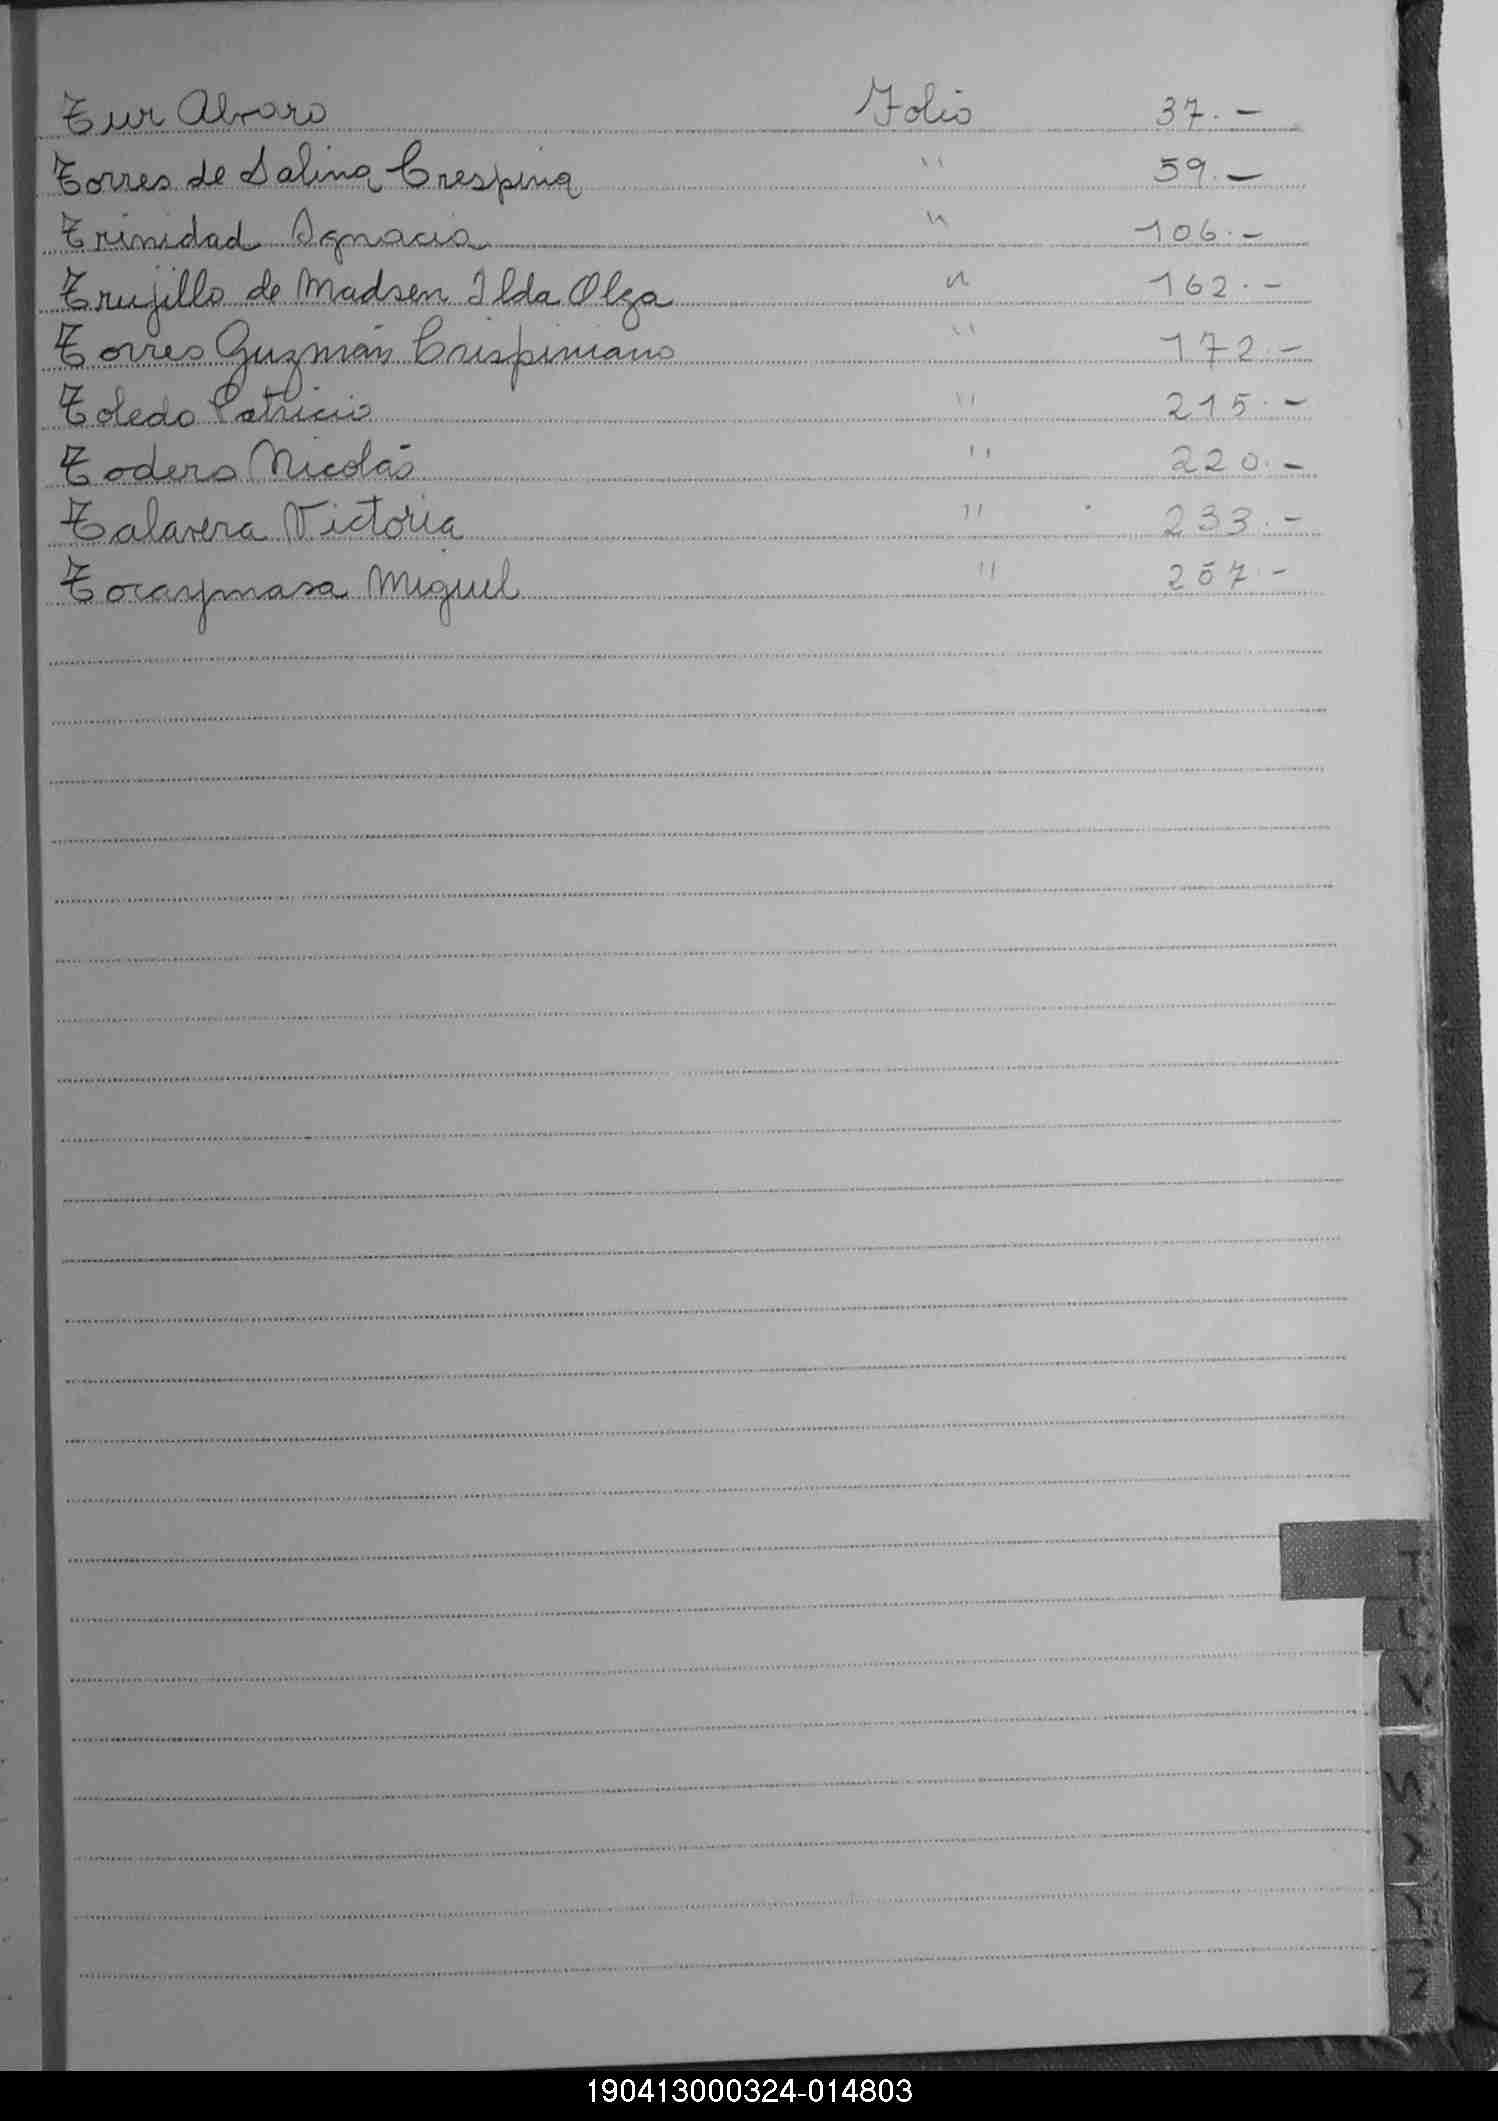 Tur Alvaro Folio 37.-
Torres de Salina Crespina " 59.-
Trinidad Ignacia " 106.-
Trujillo de Madsen Ilda Olga " 162.-
Torres Guzmán Crispiniano " 172.-
Toledo Patricio " 215.-
Todero Nicolás " 220.-
Talavera Victoria " 233.-
Miguel " 257.-
T
S
190413000324-014803